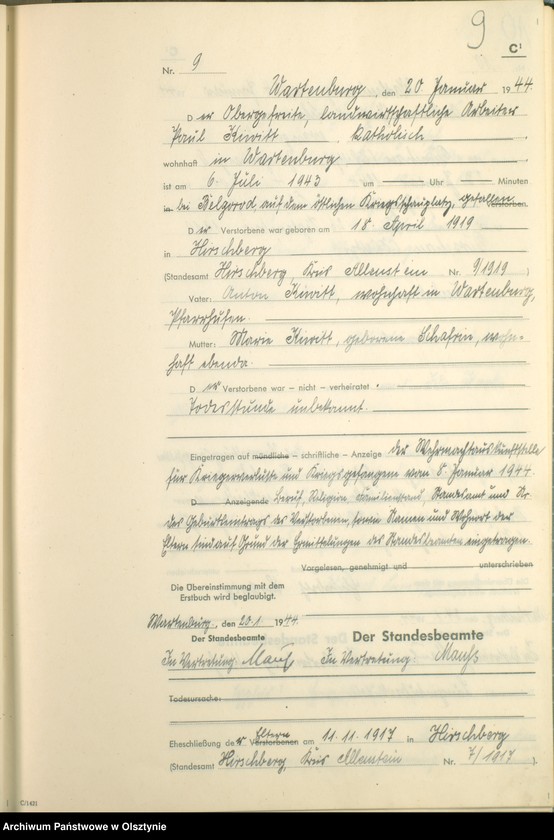 9
C¹
Nr. 9
Wartenburg, den 20 Januar 1944.
Der Obergefreite, landwirtschaftliche Arbeiter
Paul Kiwitt, katholisch,
wohnhaft in Wartenburg,
ist am 6. Juli 1943 um Uhr Minuten
in bei Belgorod auf dem östlichen Kriegsschauplatz gefallen verstorben.
Der Verstorbene war geboren am 18. April 1919
in Hirschberg
(Standesamt Hirschberg, Kreis Allenstein Nr. 9/1919)
Vater: Anton Kiwitt, wohnhaft in Wartenburg,
Pfarrhufen.
Mutter: Marie Kiwitt, geborene Schafrin, wohn-
haft ebenda.
Der Verstorbene war – nicht – verheiratet.
Todesstunde unbekannt.
Eingetragen auf mündliche – schriftliche – Anzeige der Wehrmachtauskunftstelle
für Kriegerverluste und Kriegsgefangene vom 8. Januar 1944.
D Anzeigende Beruf, Religion, Familienstand, Standesamt und Nr
des Geburtseintrags des Verstorbenen, sowie Namen und Wohnort der
Eltern sind auf Grund der Ermittelungen des Standesbeamten eingetragen.
Vorgelesen, genehmigt und unterschrieben
Die Übereinstimmung mit dem
Erstbuch wird beglaubigt.
Wartenburg, den 20.1. 1944.
Der Standesbeamte
Der Standesbeamte
In Vertretung: In Vertretung:
Todesursache:
Eheschließung der Eltern Verstorbenen am 11.11.1917 in Hirschberg
(Standesamt Hirschberg, Kreis Allenstein Nr. 7/1917).
C/1431
Archiwum Państwowe w Olsztynie